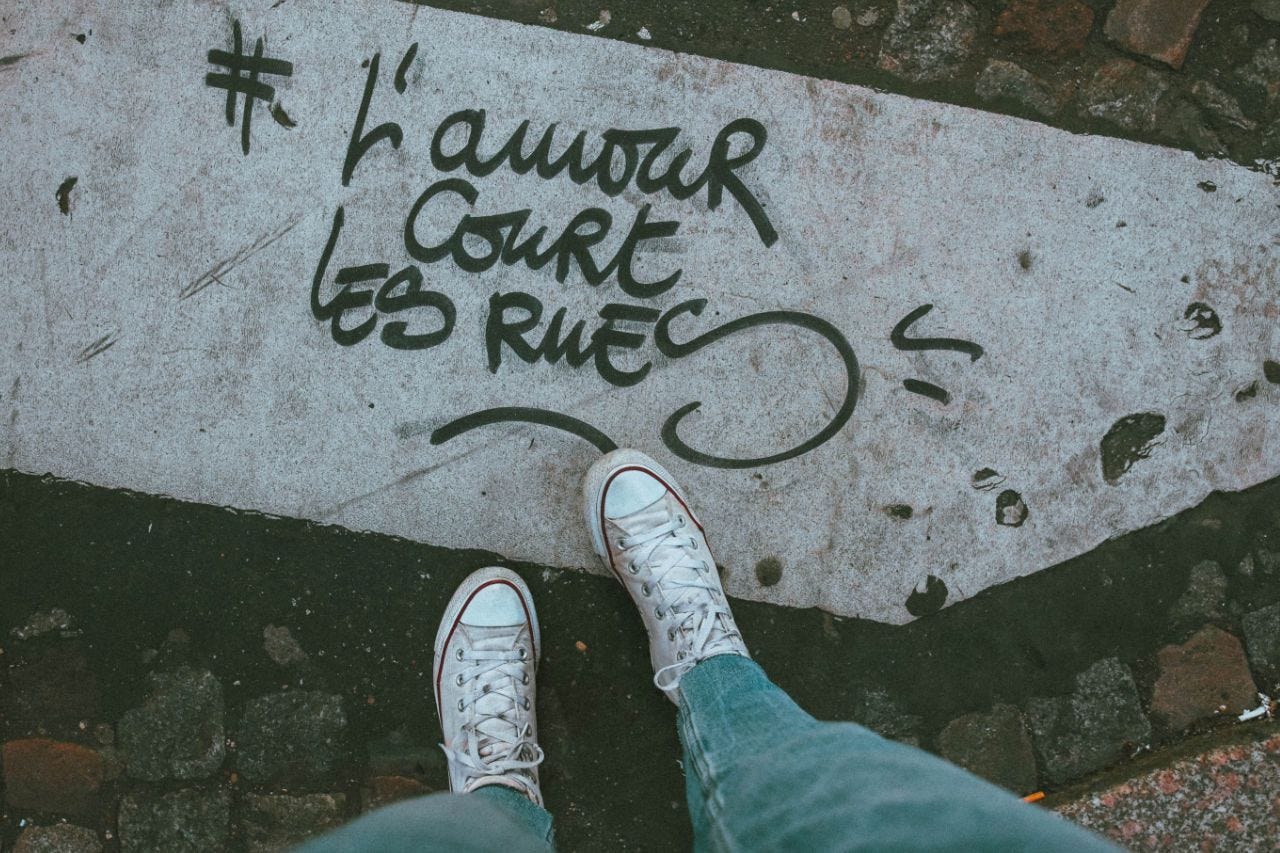 # L'amour
court
les rues